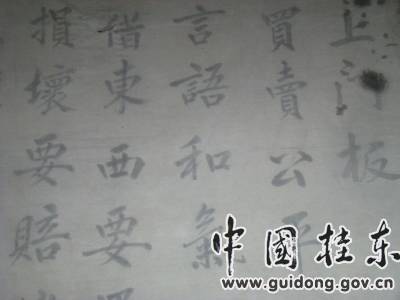 上门板
買賣公平
言語和氣
借東西要
損壞要賠
中国桂东
www.guidong.gov.cn